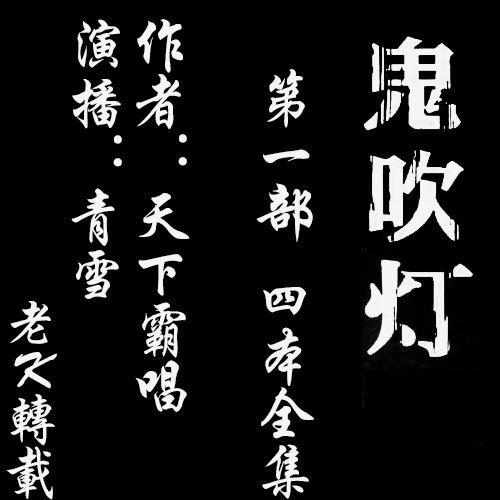 鬼吹灯
第一部 四本全集
作者：天下霸唱
演播：青雪
老K轉載